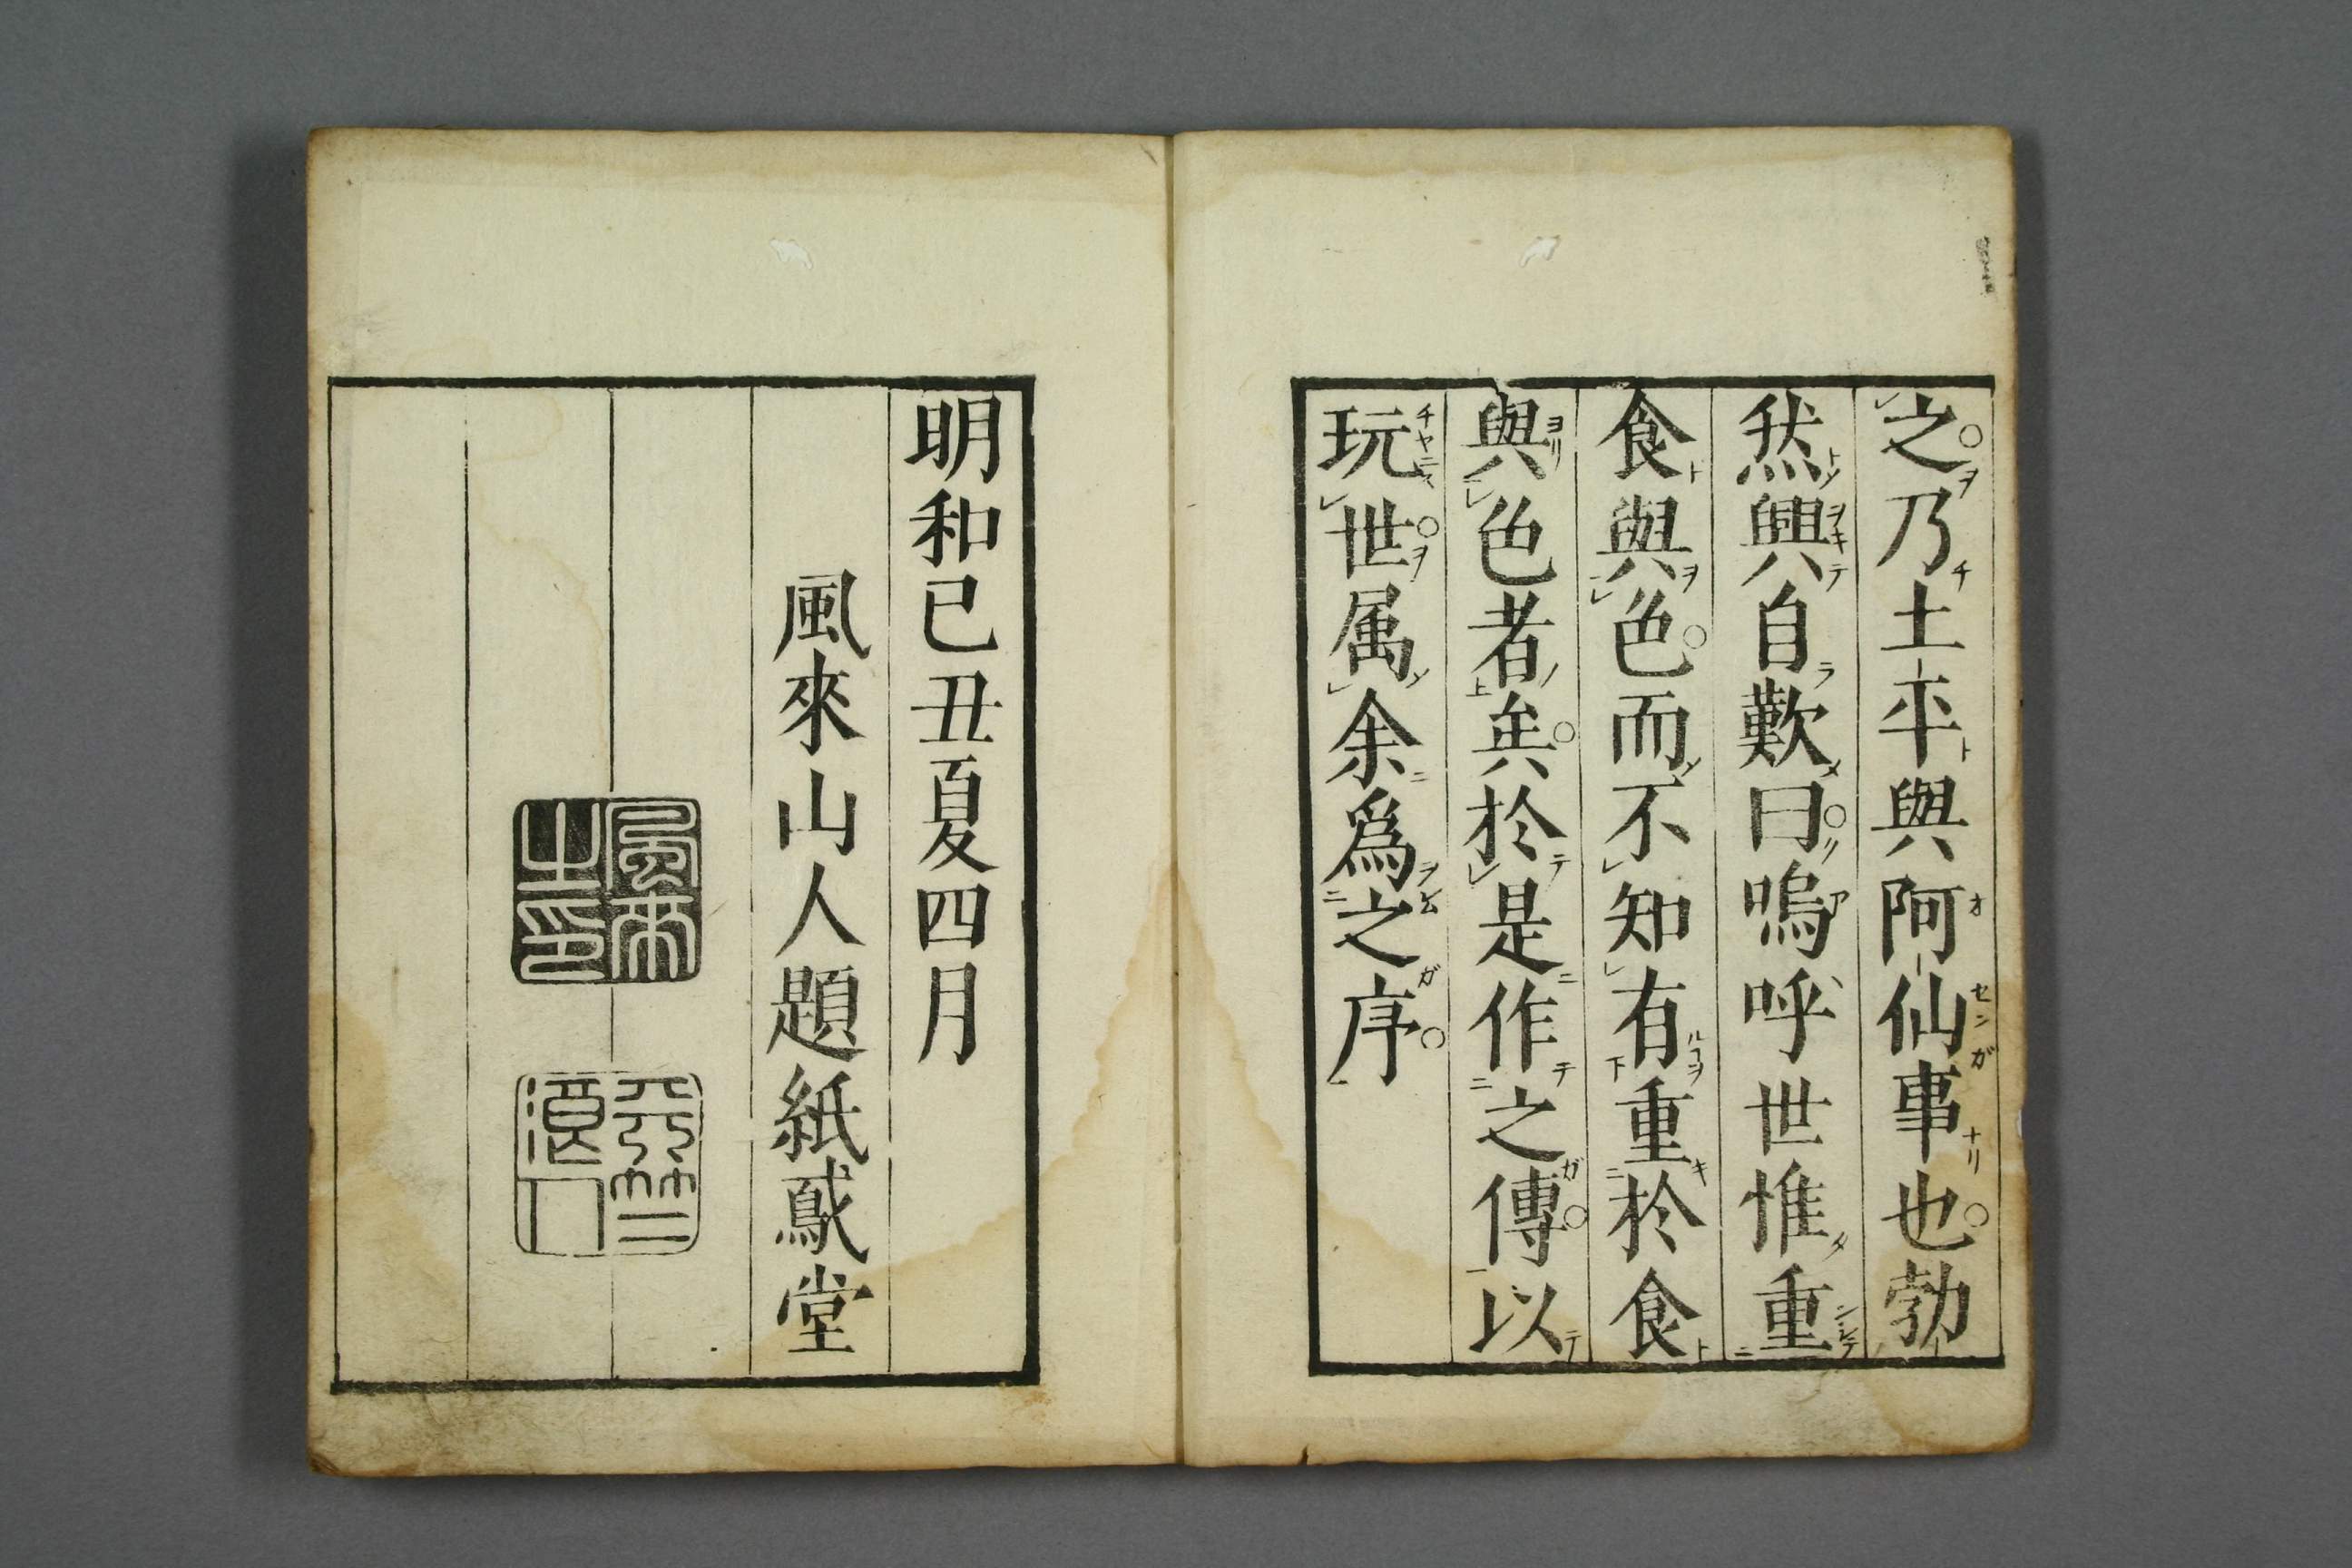 之乃土平與阿仙事也勃
然興自歎曰嗚呼世惟重
食與色而不知有重於食
與色者矣於是作之傳以
玩世属余爲之序
明和己丑夏四月
風來山人題紙鳶堂
風來
之印